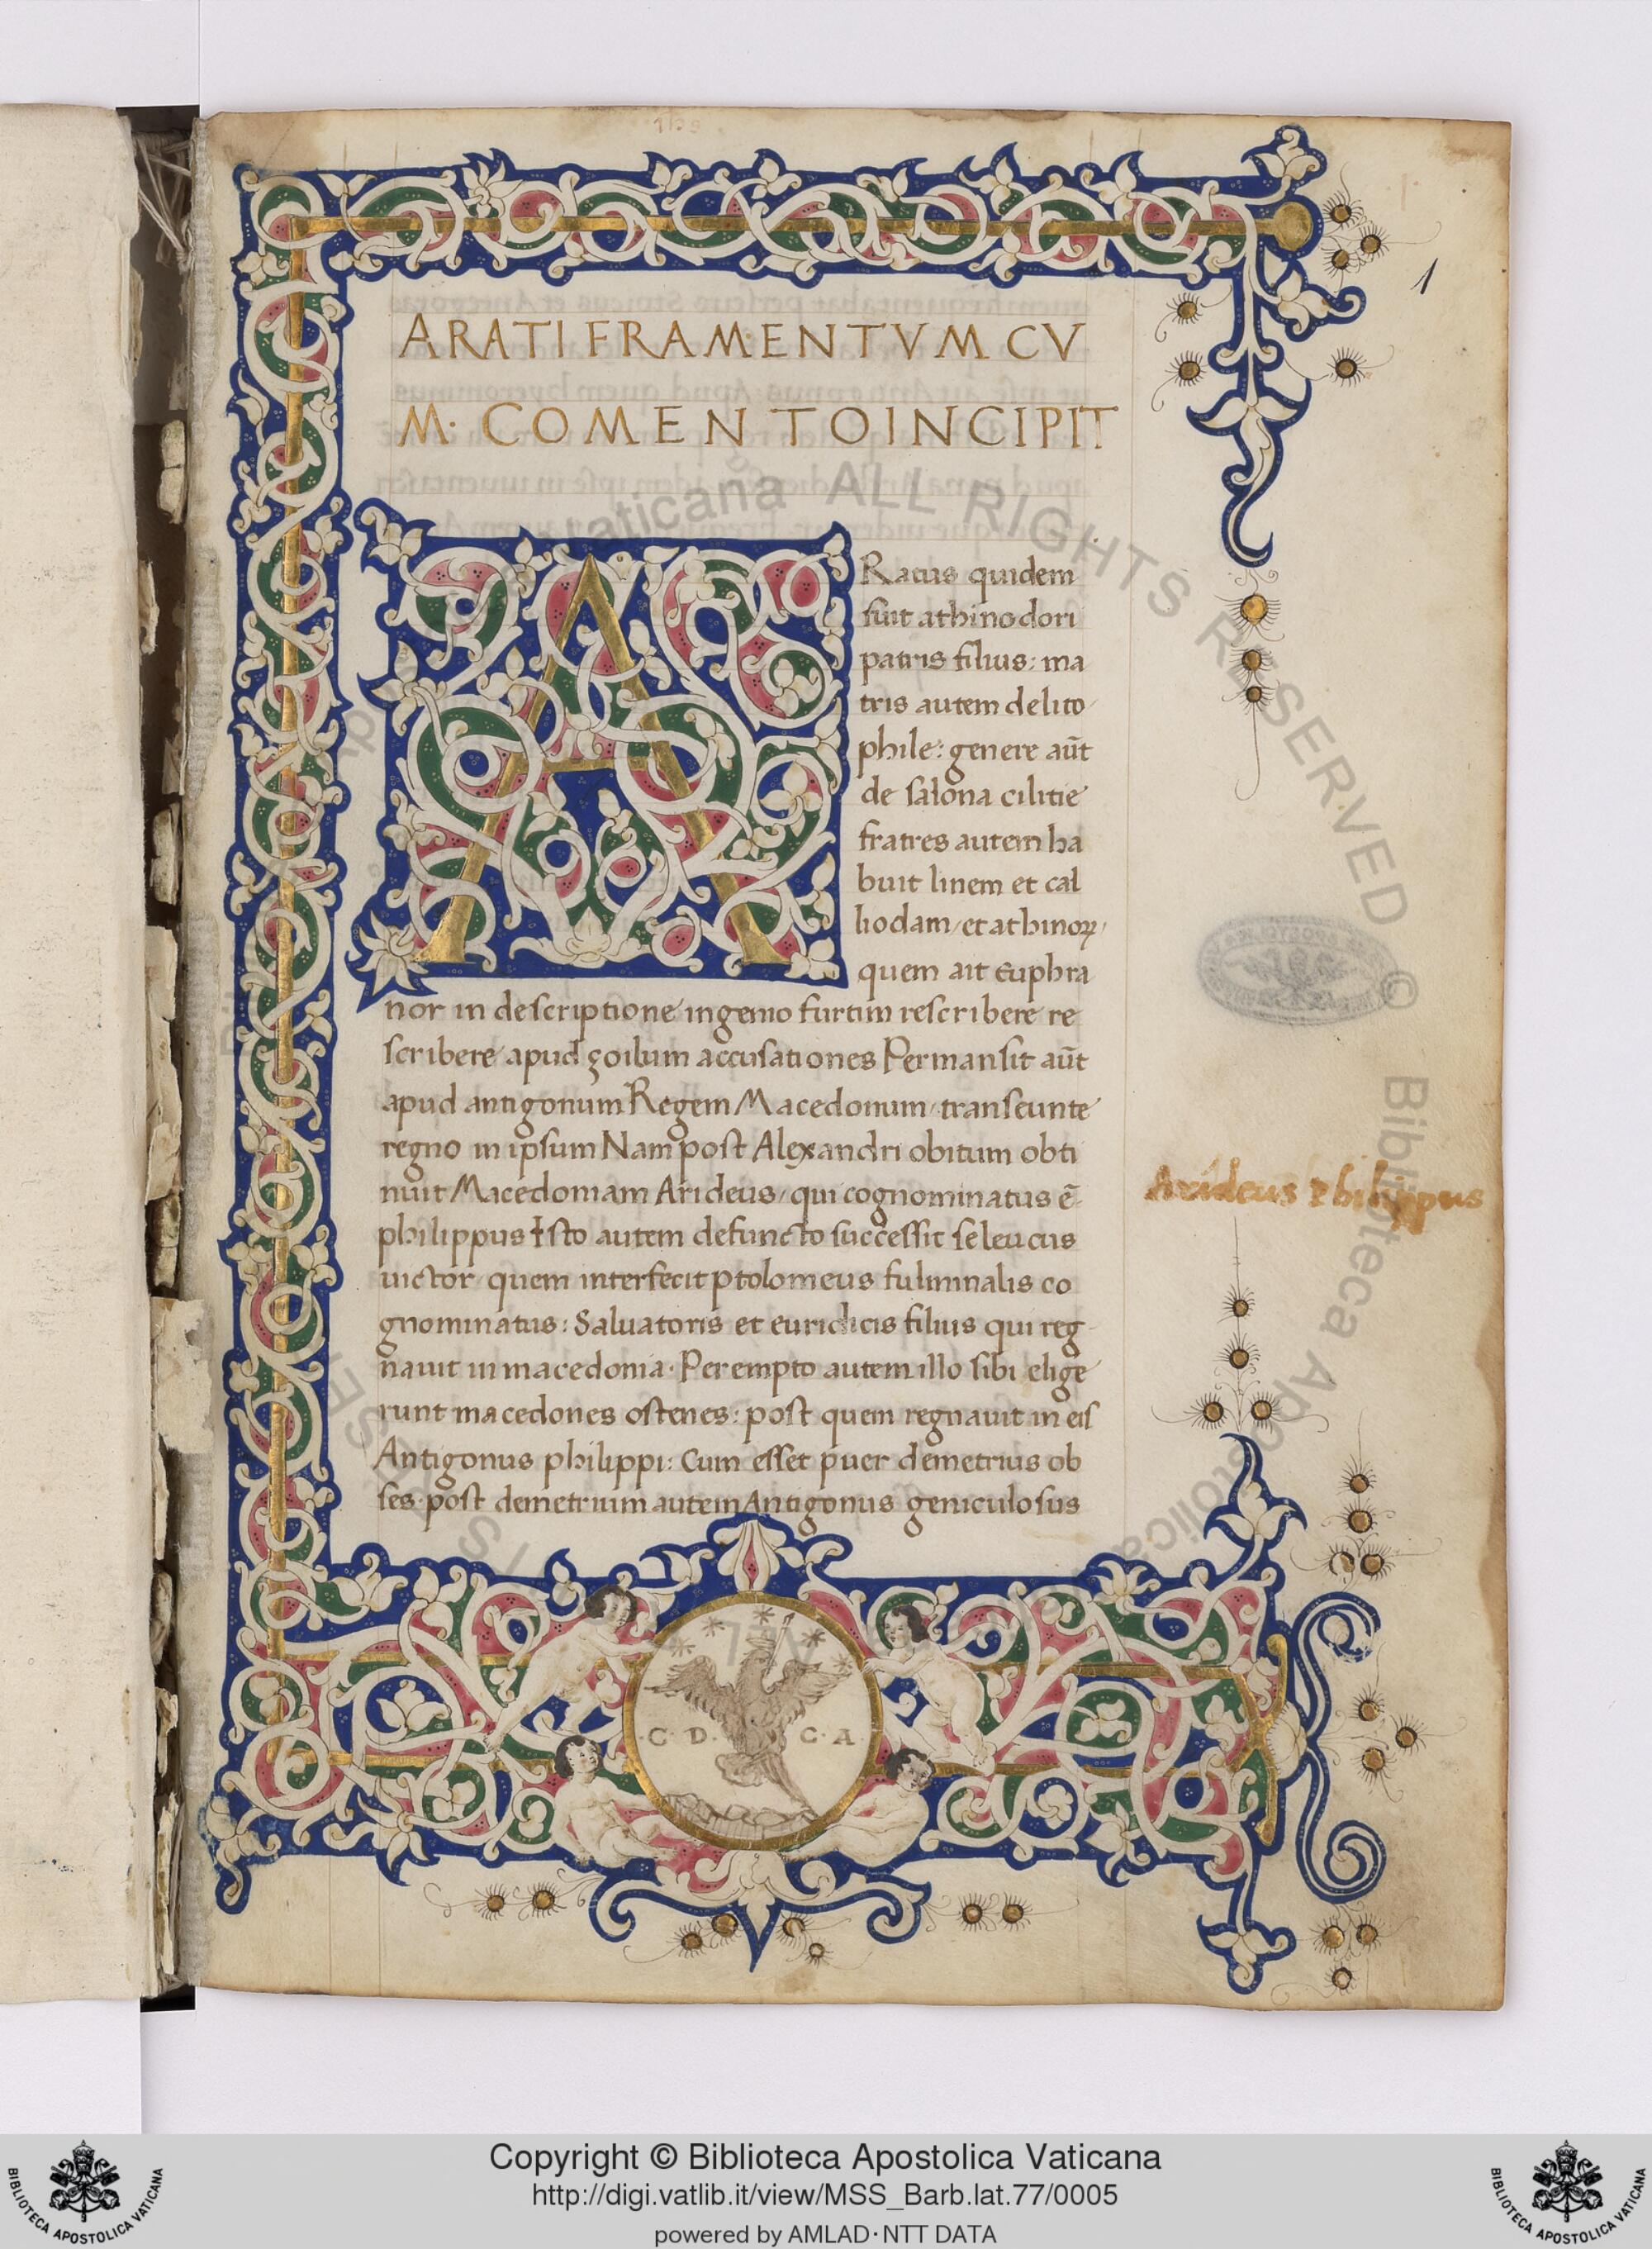 1
ARATI FRAMENTVM CV
M· COMENTO INCIPIT
ARatus quidem
fuit athinodori
patris filius: ma
tris autem delito
phile: genere aūt
de salona cilitie
fratres autem ha
buit linem et cal
liodam/et athinoꝝ/
quem ait Euphra
nor in descriptione ingenio furtim rescribere re
scribere apud zoilum accusationes Permansit aūt
apud antigonum Regem Macedonum/transeunte
regno in ipsum Nam post Alexandri obitum obti
nuit Macedoniam Arideus/qui cognominatus ē
philippus Isto autem defuncto successit seleucus
uictor/quem interfecit ptolomeus fulminalis co
gnominatus: Saluatoris et euridicis filius qui reg
nauit in macedonia· Perempto autem illo sibi elige
runt macedones ostenes: post quem regnauit in eis
Antigonus philippi: Cum esset puer demetrius ob
ses· post demetrium autem Antigonus geniculosus
Arideus Philippus
·C· D· C· A·
© Biblioteca Apostolica Vaticana ALL RIGHTS RESERVED
Copyright © Biblioteca Apostolica Vaticana
http://digi.vatlib.it/view/MSS_Barb.lat.77/0005
powered by AMLAD·NTT DATA
BIBLIOTECA APOSTOLICA VATICANA
BIBLIOTECA APOSTOLICA VATICANA